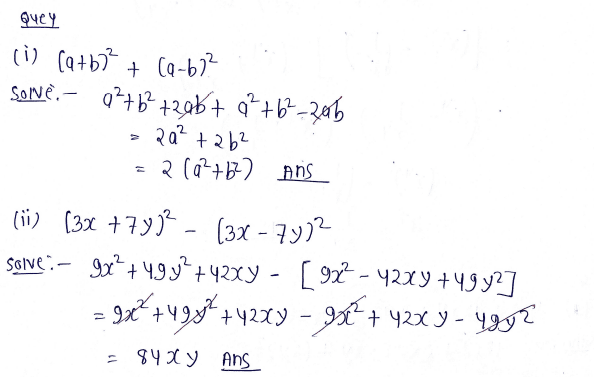 Query
(i) (a+b)² + (a-b)²
Solve:- a²+b²+2ab+ a²+b²-2ab
= 2a² + 2b²
= 2 (a²+b²) Ans
(ii) (3x +7y)² - (3x - 7y)²
Solve:- 9x²+49y²+42xy - [9x² - 42xy +49y²]
= 9x²+49y²+42xy - 9x²+ 42xy - 49y²
= 84xy Ans